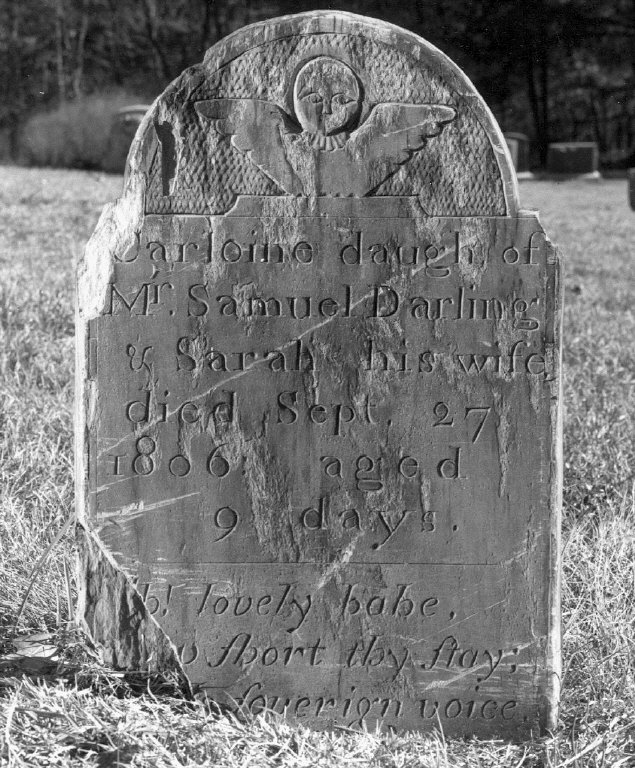 Carloine daugh. of
Mr. Samuel Darling
& Sarah his wife,
died Sept. 27
1806 aged
9 days.
Oh! lovely babe,
how ſhort thy ſtay;
ſoverign voice